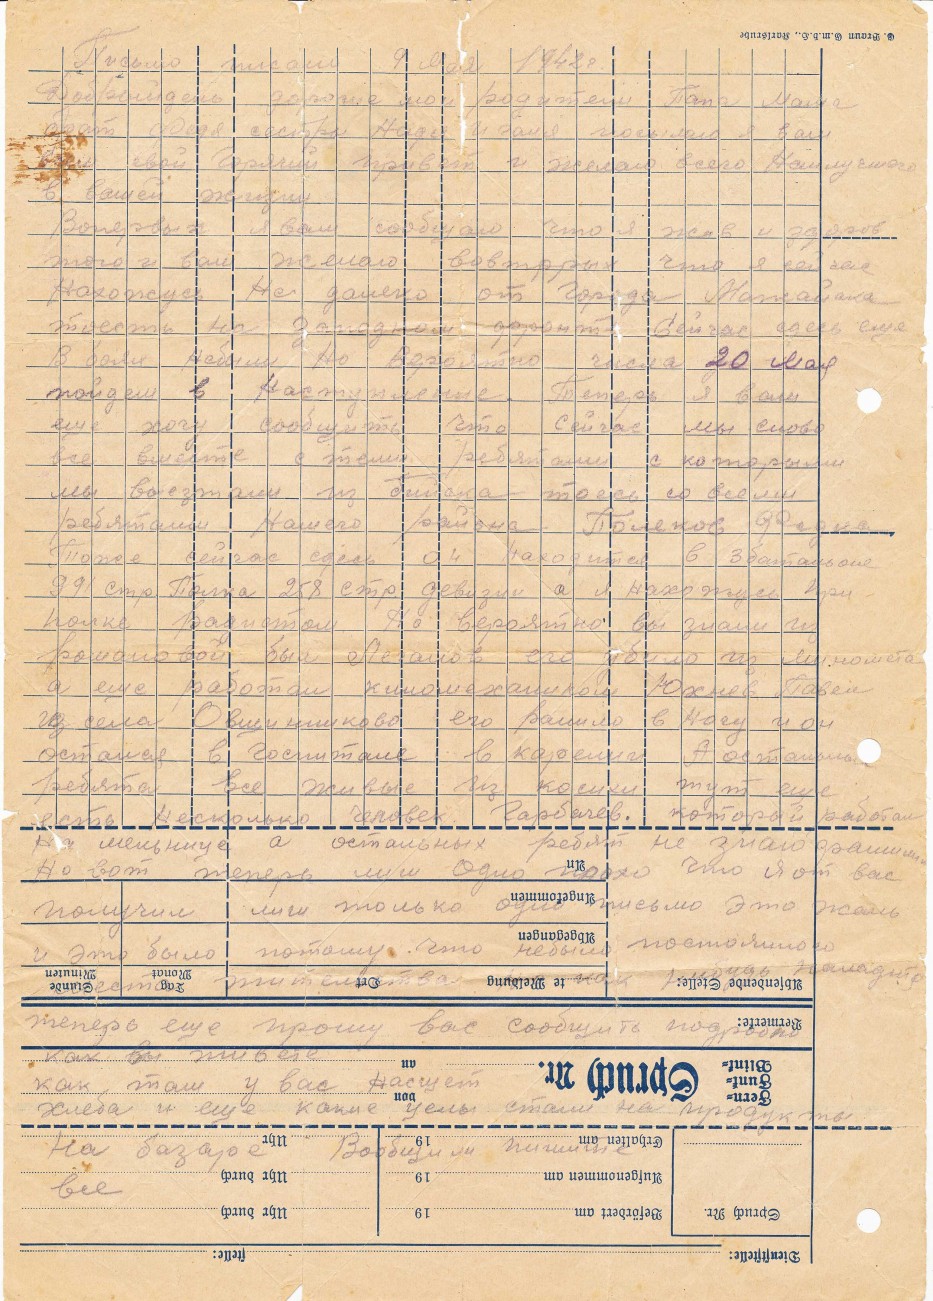 C. Braun G.m.b.H., Karlsruhe
Письмо писали 9 мая 1942 г.
Добрый день дорогие мои родители Папа Мама
брат Федя сестры Надя и посылаю я вам
свой горячий привет и желаю всего Наилучшего
в вашей жизни
Вопервых я вам сообщаю что я жив и здоров
того и вам желаю вовторых что я сейчас
Нахожусь Не далеко от Города Мажайска
тоесть на Западном фронте Сейчас сдесь еще
В боях Небыли Но вероятно числа 20 мая
пойдем в Наступление. Теперь я вам
еще хочу сообщить что сейчас мы снова
все вместе с теми ребятами с которыми
мы выезжали из Бийска тоесь со всеми
ребятами Нашего района Полеков Федка
Тоже сейчас сдесь он Находится в 3 батальоне
991 стр Полка 258 стр девизии а я Нахожусь При-
полке радистом Но вероятно вы знали из
романовой был его убило из миномета
а еще работал киномехаником Юхнев Павел
из села Овшинниково его ранило в Ногу и он
остался в Госпитале в карелии А остальные
ребята все живые из косихи тут еще
есть Несколько человек. Гарбачев. который работал
На мельнице а остальных ребят не знаю
Но вот теперь лиш Одно плохо что я от вас
An
получил лиш только одно письмо это жаль
Angekommen
и это было потому что небыло постоянного
Abgegangen
места жительства
Absendende Stelle: te Meldung Ort Tag Monat Stunde Minuten
теперь еще прошу вас сообщить подробно
Vermerke:
как вы живете
Fern- Funk- Blink- Spruch Nr. an von
как там у вас Насчет
хлеба и еще какие цены стали на продукты
На базаре Вообщим пишите
Erhalten am 19 Uhr
все
Aufgenommen am 19 Uhr durch
Spruch Nr. Befördert am 19 Uhr durch
Dienststelle: stelle: